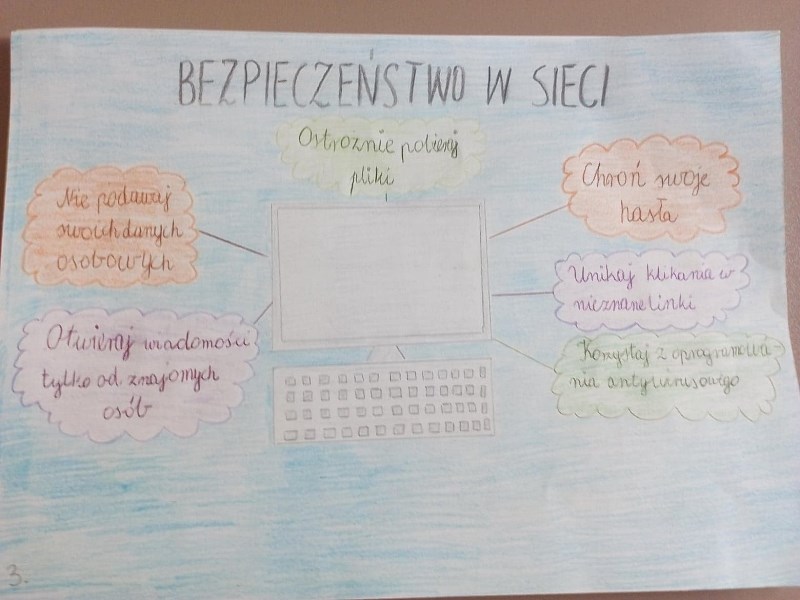 BEZPIECZEŃSTWO W SIECI
Ostrożnie pobieraj
pliki
Nie podawaj
swoich danych
osobowych
Chroń swoje
hasła
Unikaj klikania w
nieznane linki
Otwieraj wiadomości
tylko od znajomych
osób
Korzystaj z oprogramowa
nia antywirusowego
3.